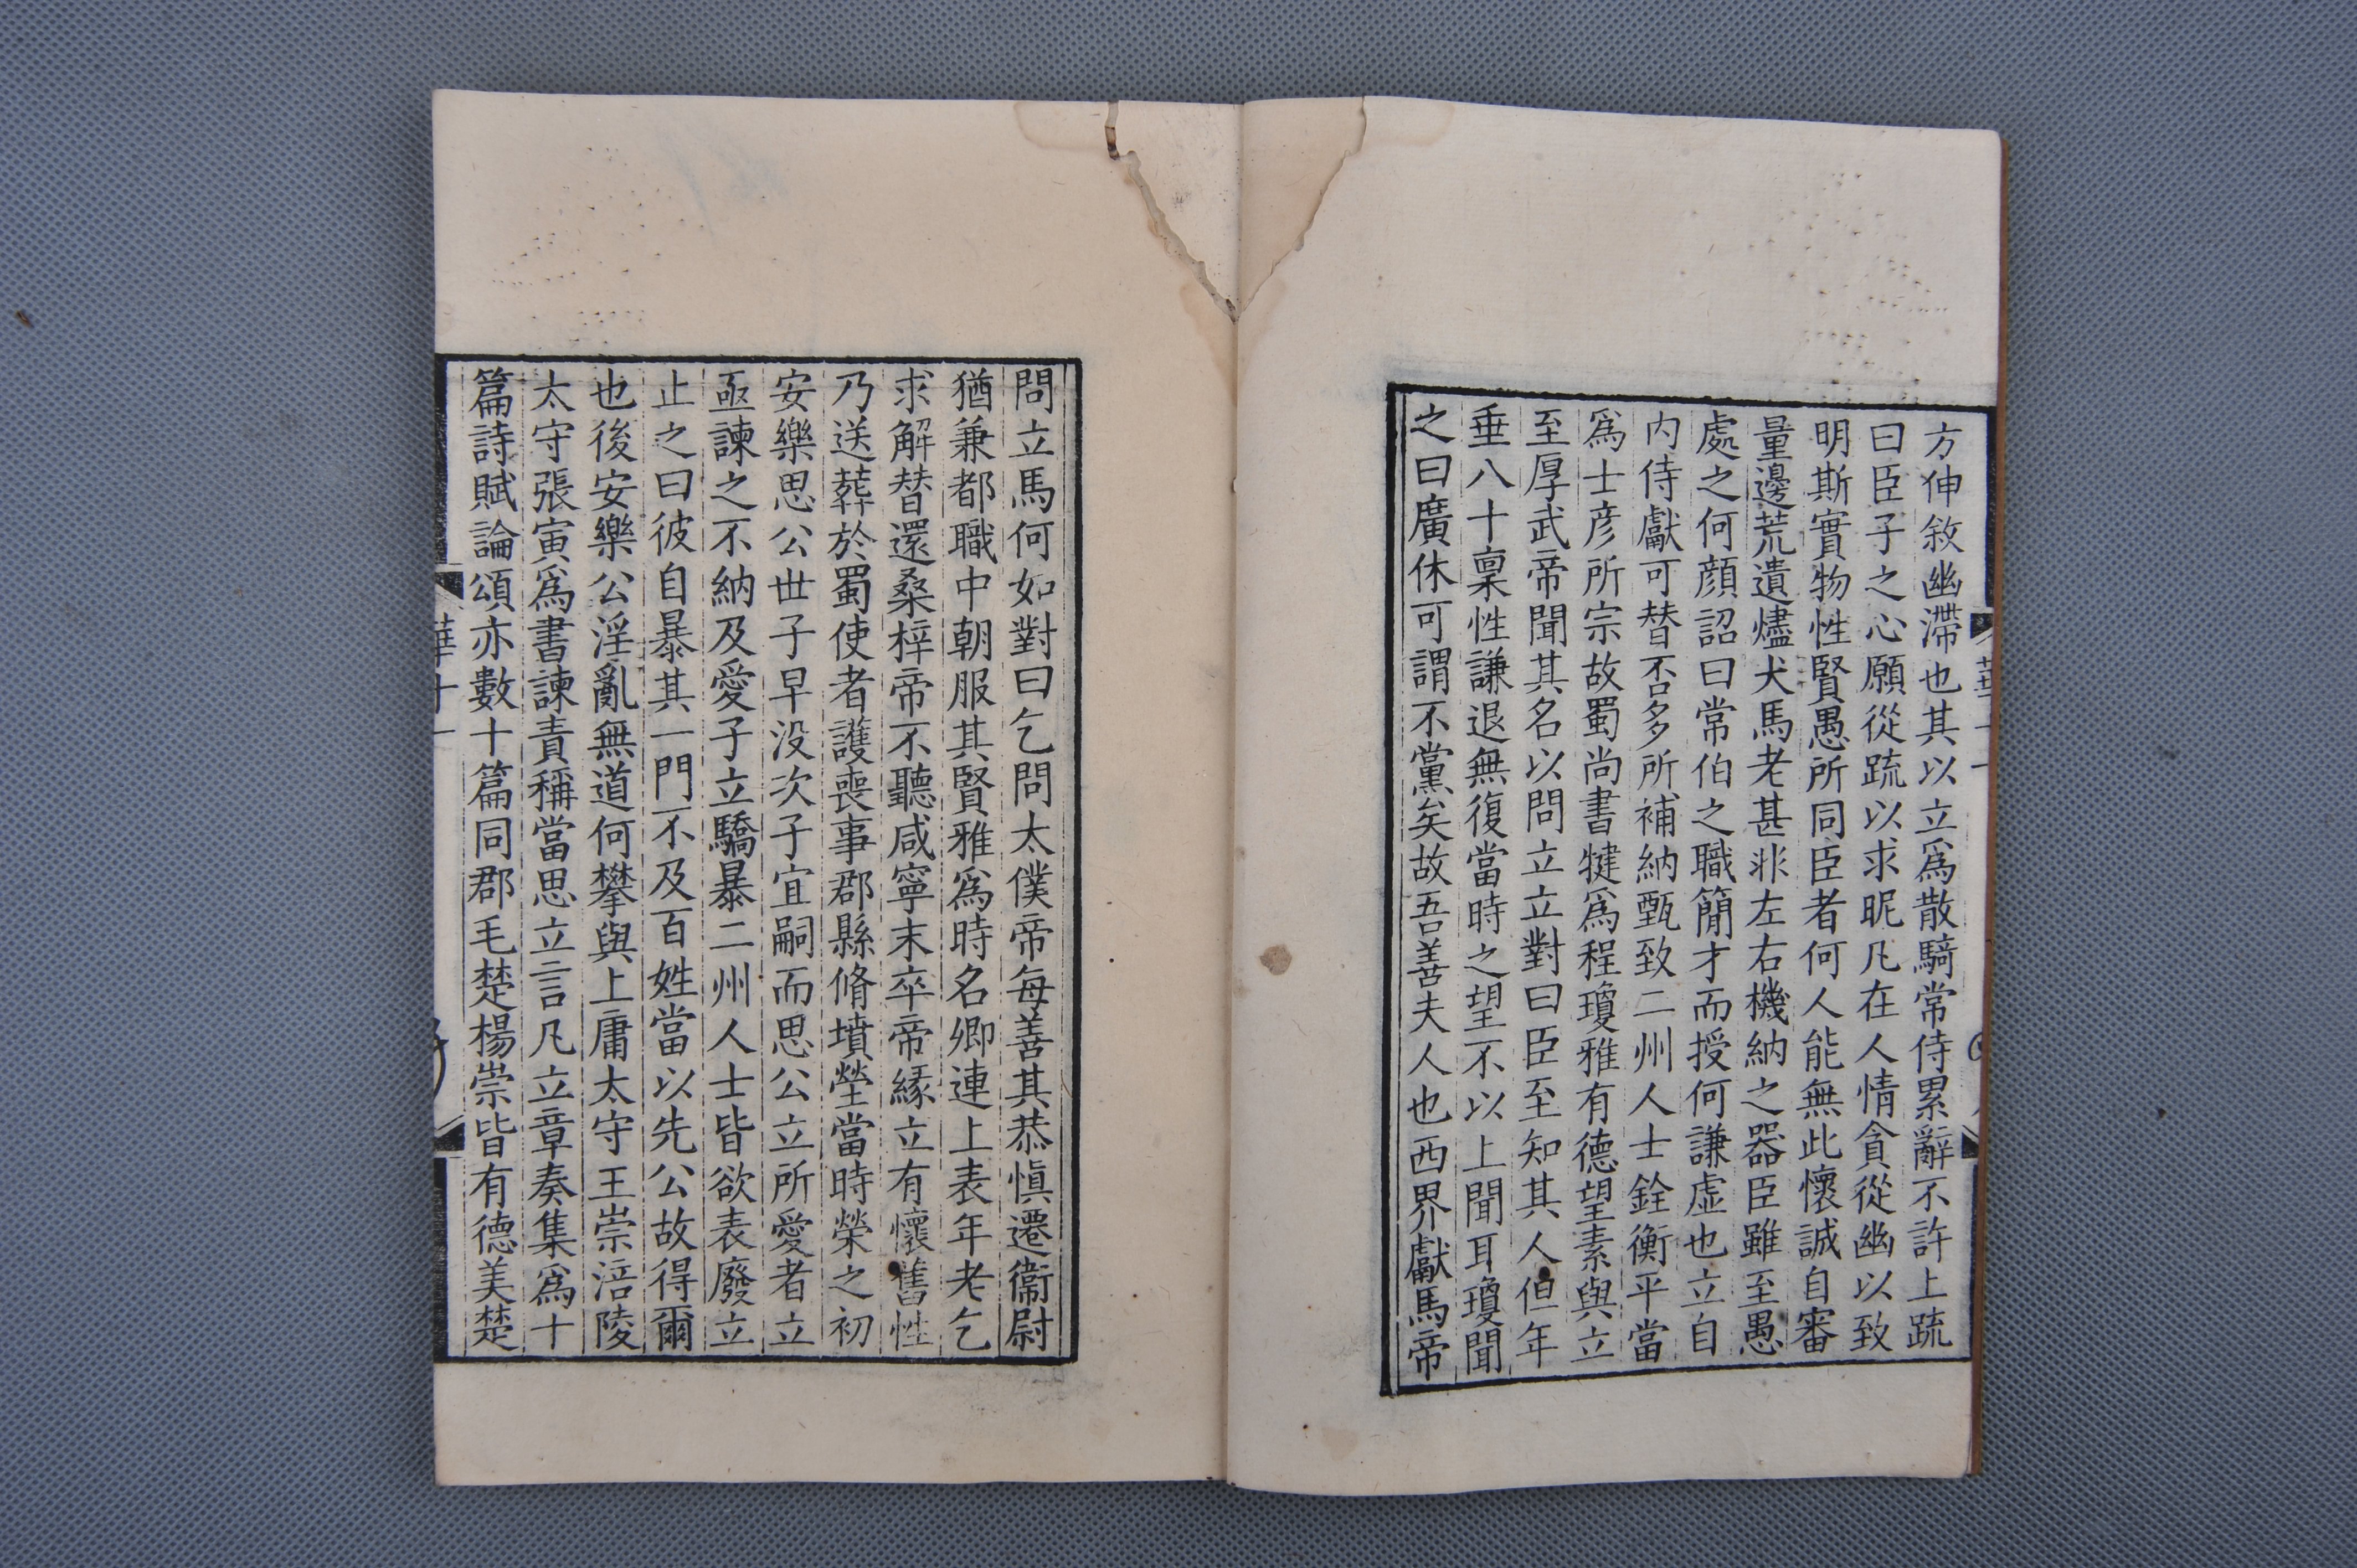 方伸敘幽滯也其以立爲散騎常侍累辭不許上疏
曰臣子之心願從疏以求昵凡在人情貪從幽以致
明斯實物性賢愚所同臣者何人能無此懷誠自審
量邊荒遺燼犬馬老甚非左右機納之器臣雖至愚
處之何顔詔曰常伯之職簡才而授何謙虛也立自
内侍獻可替否多所補納甄致二州人士銓衡平當
爲士彦所宗故蜀尚書犍爲程瓊雅有德望素與立
至厚武帝聞其名以問立立對曰臣至知其人但年
垂八十稟性謙退無復當時之望不以上聞耳瓊聞
之曰廣休可謂不黨矣故吾善夫人也西界獻馬帝
問立馬何如對曰乞問太僕帝每善其恭慎遷衞尉
猶兼都職中朝服其賢雅爲時名卿連上表年老乞
求解替還桑梓帝不聽咸寧末卒帝緣立有懷舊性
乃送葬於蜀使者護喪事郡縣脩墳塋當時榮之初
安樂思公世子早没次子宜嗣而思公立所愛者立
亟諫之不納及愛子立驕暴二州人士皆欲表廢立
止之曰彼自暴其一門不及百姓當以先公故得爾
也後安樂公淫亂無道何攀與上庸太守王崇涪陵
太守張寅爲書諫責稱當思立言凡立章奏集爲十
篇詩賦論頌亦數十篇同郡毛楚楊崇皆有德美楚
華十一